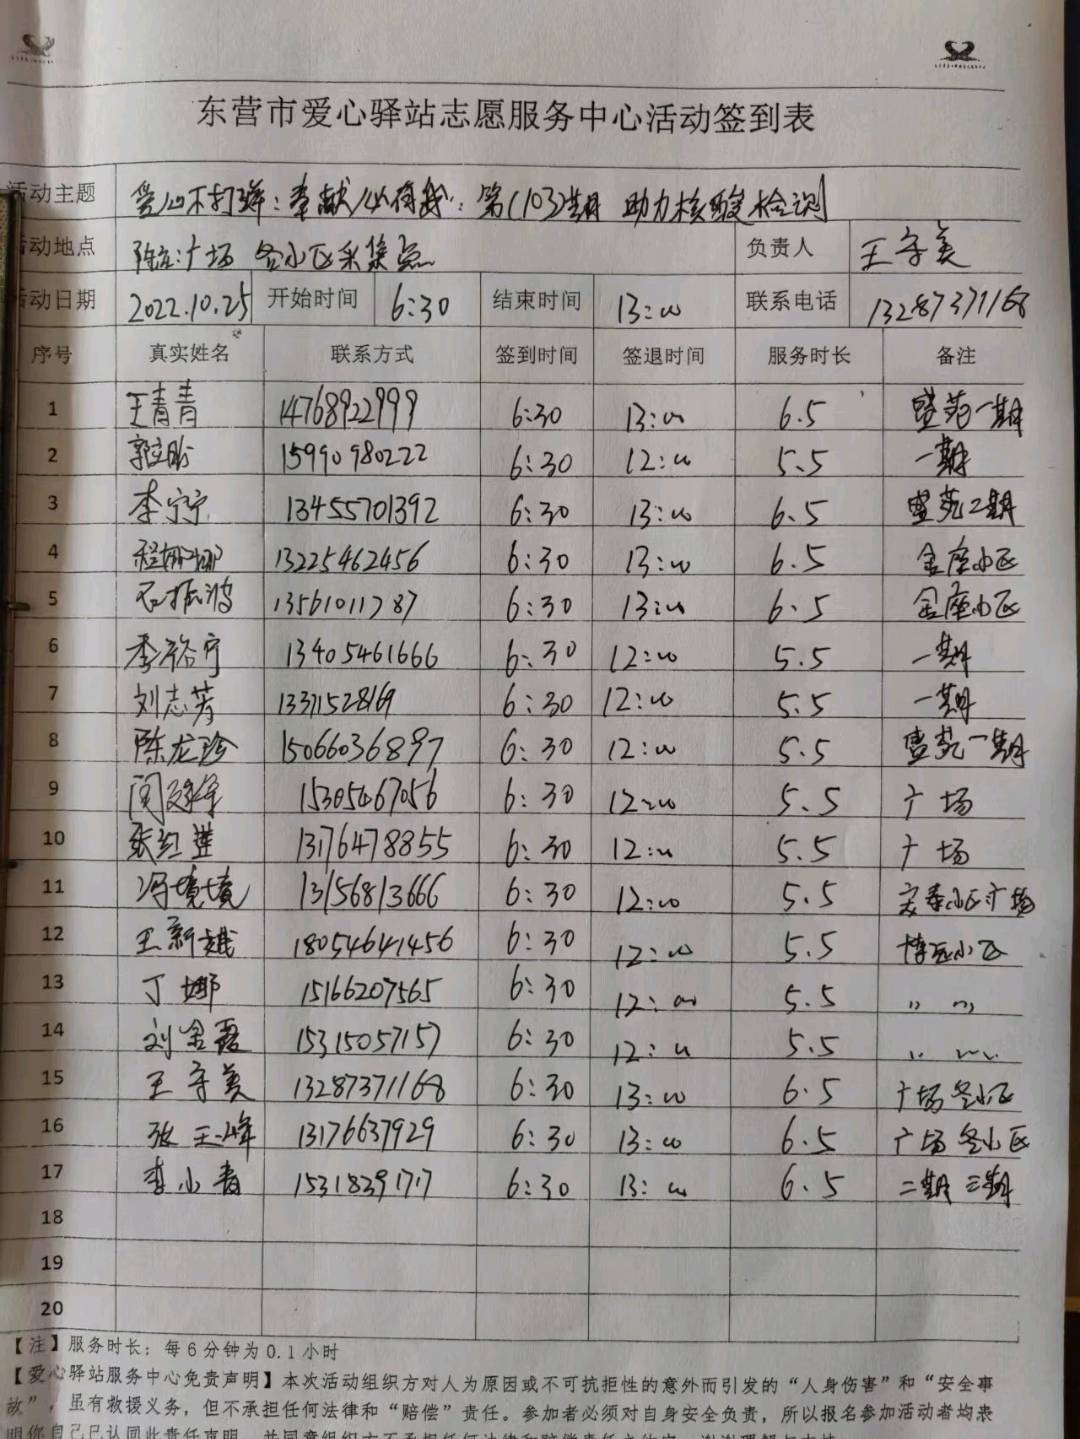 东营市爱心驿站志愿服务中心活动签到表
活动主题 爱心不打烊：奉献必有我：第(103)期 助力核酸检测
活动地点 广场 各小区采集点 负责人 王守美
活动日期 2022.10.25 开始时间 6:30 结束时间 13:00 联系电话 13287371168
序号 真实姓名 联系方式 签到时间 签退时间 服务时长 备注
1 王青青 14768922999 6:30 13:00 6.5 盛苑一期
2 15990980222 6:30 12:00 5.5 一期
3 李宁宁 13455701392 6:30 13:00 6.5 盛苑二期
4 程娜娜 13225462456 6:30 13:00 6.5 金座小区
5 石振波 13561011787 6:30 13:00 6.5 金座小区
6 李裕宁 13405461666 6:30 12:00 5.5 一期
7 刘志芳 13371528169 6:30 12:00 5.5 一期
8 陈龙珍 15066036897 6:30 12:00 5.5 盛苑一期
9 15305467056 6:30 12:00 5.5 广场
10 张红莲 13176478855 6:30 12:00 5.5 广场
11 冯境境 13156813666 6:30 12:00 5.5 小区广场
12 王新娥 18054641456 6:30 12:00 5.5 小区
13 丁娜 15166207565 6:30 12:00 5.5 〃 〃
14 刘金磊 15315057157 6:30 12:00 5.5 〃 〃
15 王守美 13287371168 6:30 13:00 6.5 广场各小区
16 张玉峰 13176637929 6:30 13:00 6.5 广场各小区
17 李小青 15318391717 6:30 13:00 6.5 二期三期
18
19
20
【注】服务时长：每6分钟为0.1小时
【爱心驿站服务中心免责声明】本次活动组织方对人为原因或不可抗拒性的意外而引发的“人身伤害”和“安全事
故”，虽有救援义务，但不承担任何法律和“赔偿”责任。参加者必须对自身安全负责，所以报名参加活动者均表
明你自己已认同此责任声明，并同意组织方不承担任何法律和赔偿责任之约定，谢谢理解与支持